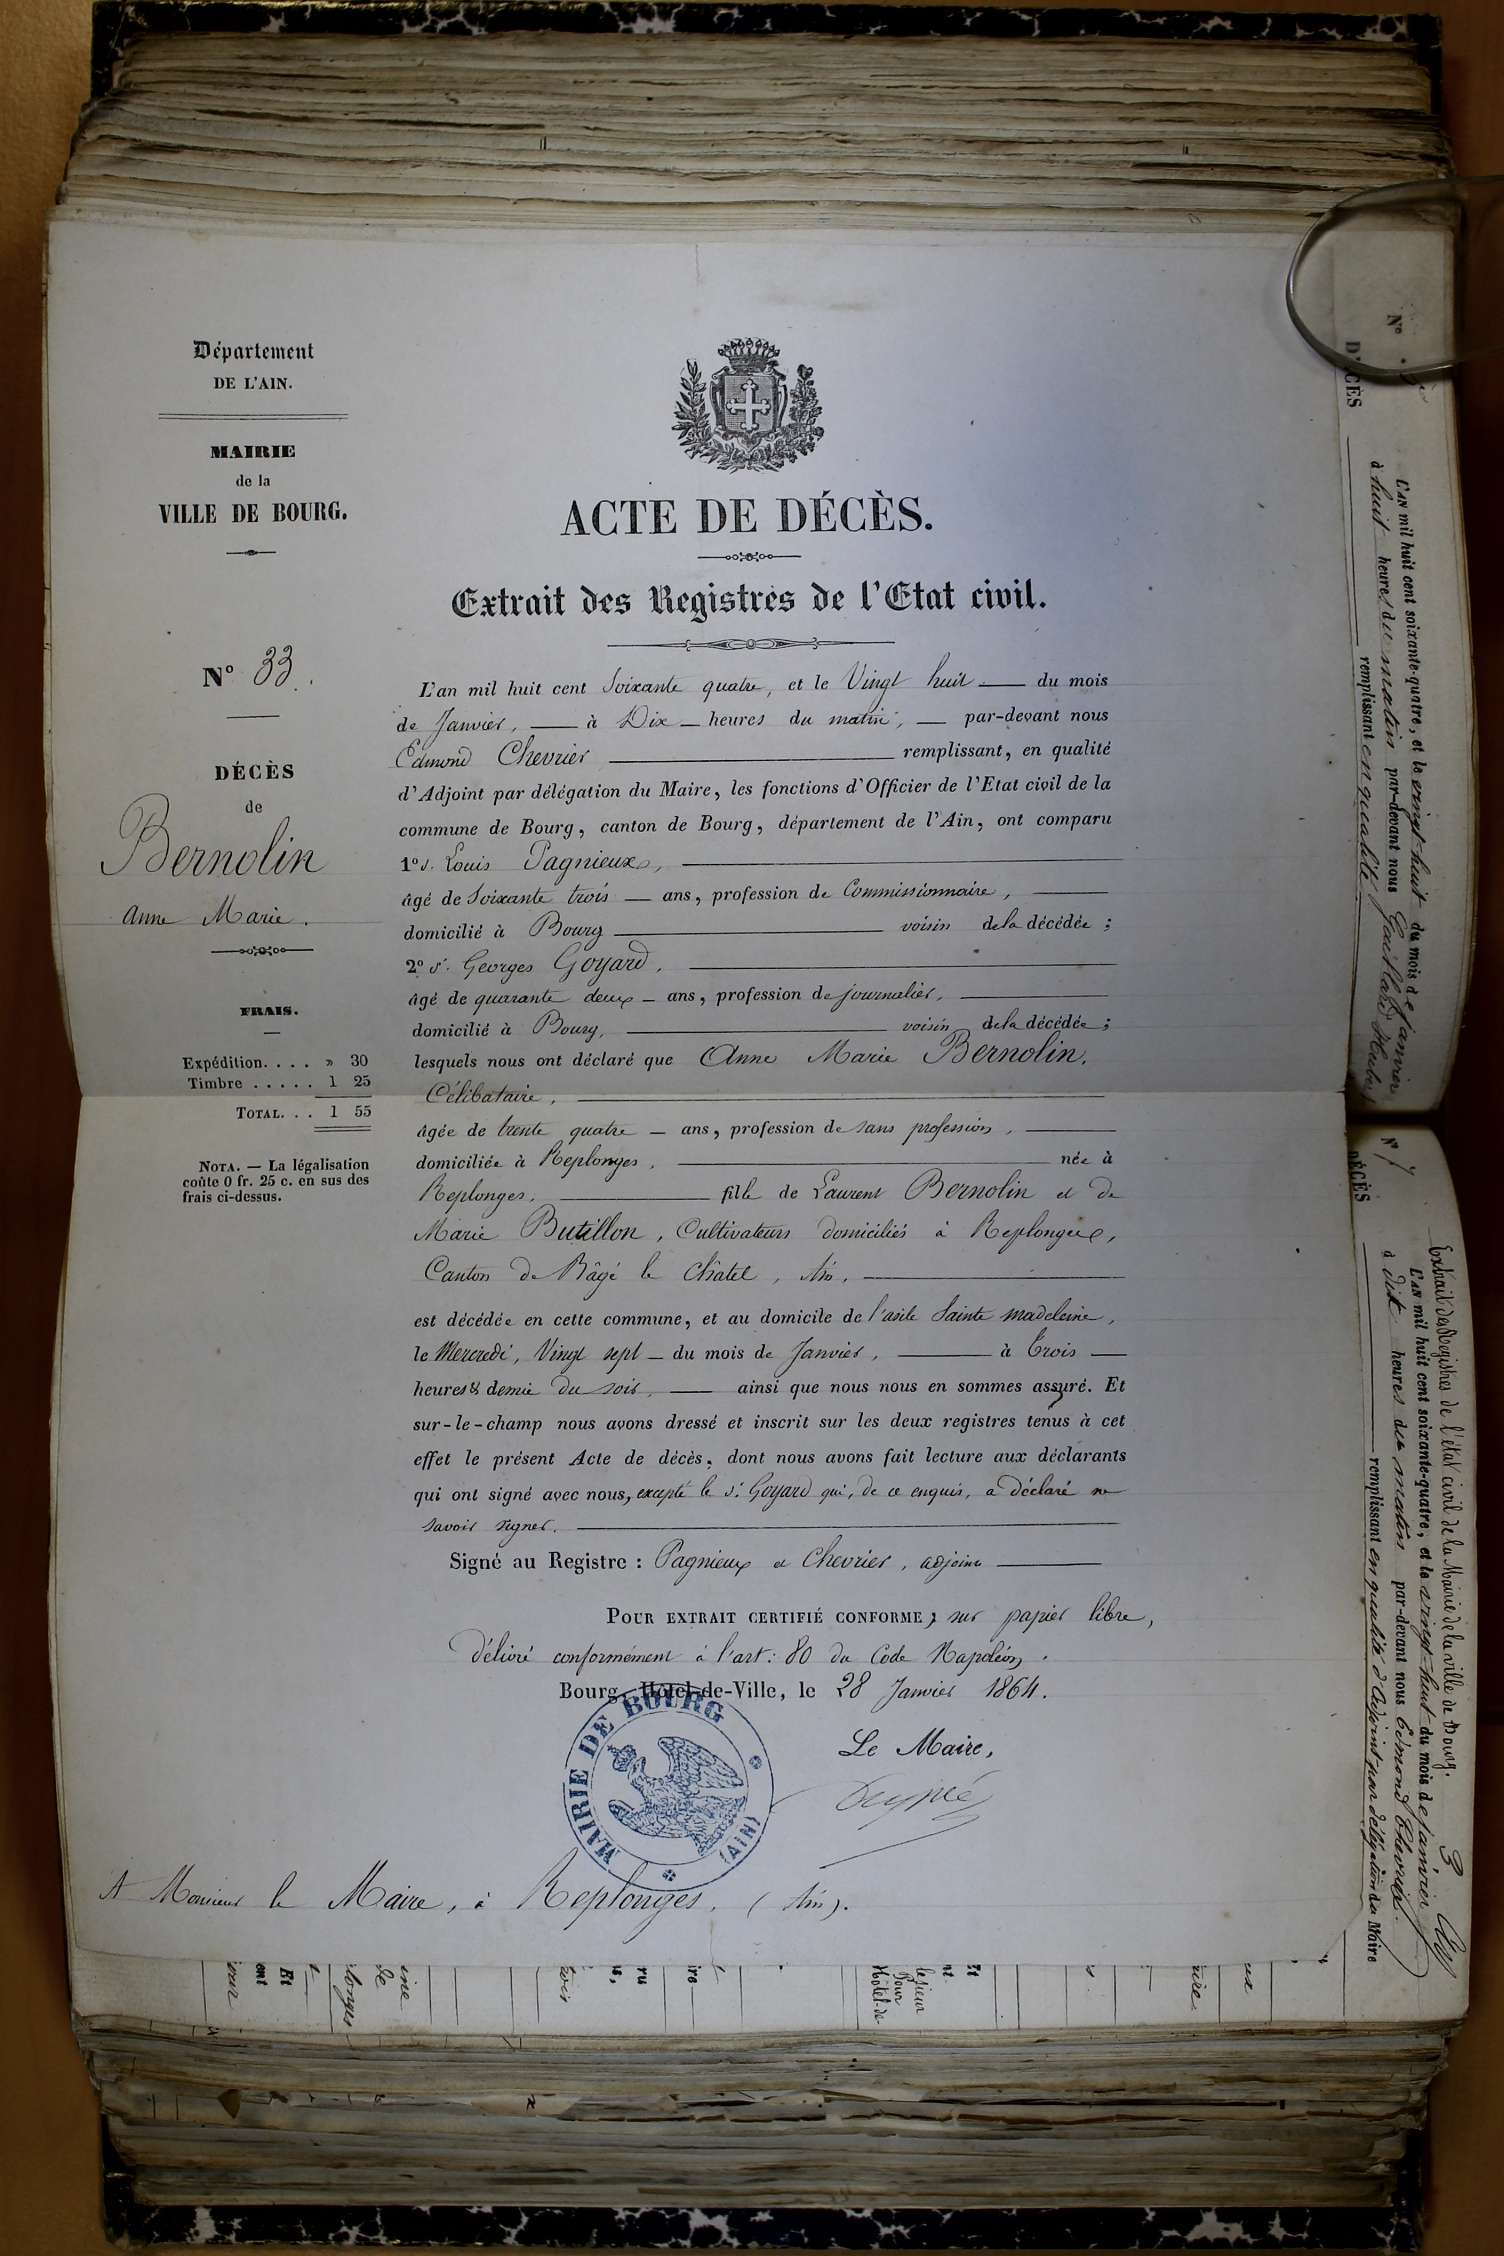 Département
DE L'AIN.
MAIRIE
de la
VILLE DE BOURG.
ACTE DE DÉCÈS.
Extrait des Registres de l'Etat civil.
N° 33.
DÉCÈS
de
Bernolin
Anne Marie.
FRAIS.
Expédition. . . . » 30
Timbre . . . . . 1 25
TOTAL. . . 1 55
NOTA. — La légalisation
coûte 0 fr. 25 c. en sus des
frais ci-dessus.
L'an mil huit cent Soixante quatre, et le Vingt huit — du mois
de Janvier, — à Dix — heures du matin, — par-devant nous
Edmond Chevrier — remplissant, en qualité
d'Adjoint par délégation du Maire, les fonctions d'Officier de l'Etat civil de la
commune de Bourg, canton de Bourg, département de l'Ain, ont comparu
1° s. Louis Pagnieux, —
âgé de Soixante trois — ans, profession de Commissionnaire, —
domicilié à Bourg — voisin de la décédée ;
2° s. Georges Goyard, —
âgé de quarante deux — ans, profession de journalier, —
domicilié à Bourg, — voisin de la décédée ;
lesquels nous ont déclaré que Anne Marie Bernolin,
Célibataire, —
âgée de trente quatre — ans, profession de sans profession, —
domiciliée à Replonges, — née à
Replonges, — fille de Laurent Bernolin et de
Marie Butillon, Cultivateurs domiciliés à Replonges,
Canton de Bâgé le Châtel, Ain, —
est décédée en cette commune, et au domicile de l'asile Sainte Madeleine,
le Mercredi, Vingt sept — du mois de Janvier, — à Trois —
heures & demie du soir, — ainsi que nous nous en sommes assuré. Et
sur-le-champ nous avons dressé et inscrit sur les deux registres tenus à cet
effet le présent Acte de décès, dont nous avons fait lecture aux déclarants
qui ont signé avec nous, excepté le s. Goyard qui, de ce enquis, a déclaré ne
savoir signer. —
Signé au Registre : Pagnieux et Chevrier, adjoint —
POUR EXTRAIT CERTIFIÉ CONFORME, sur papier libre,
délivré conformément à l'art: 80 du Code Napoléon.
Bourg, Hôtel-de-Ville, le 28 Janvier 1864.
Le Maire,
MAIRIE DE BOURG
(AIN)
A Monsieur le Maire, à Replonges, (Ain).
N°
DÉCÈS
L'AN mil huit cent soixante-quatre, et le vingt-huit du mois de janvier
à huit heures du matin par-devant nous
remplissant en qualité
3
Extrait des Registres de l'état civil de la Mairie de la ville de Bourg.
N° 7
L'AN mil huit cent soixante-quatre, et le vingt-huit du mois de janvier
DÉCÈS
à dix heures du matin par-devant nous Edmond Chevrier
remplissant en qualité d'Adjoint par délégation du Maire